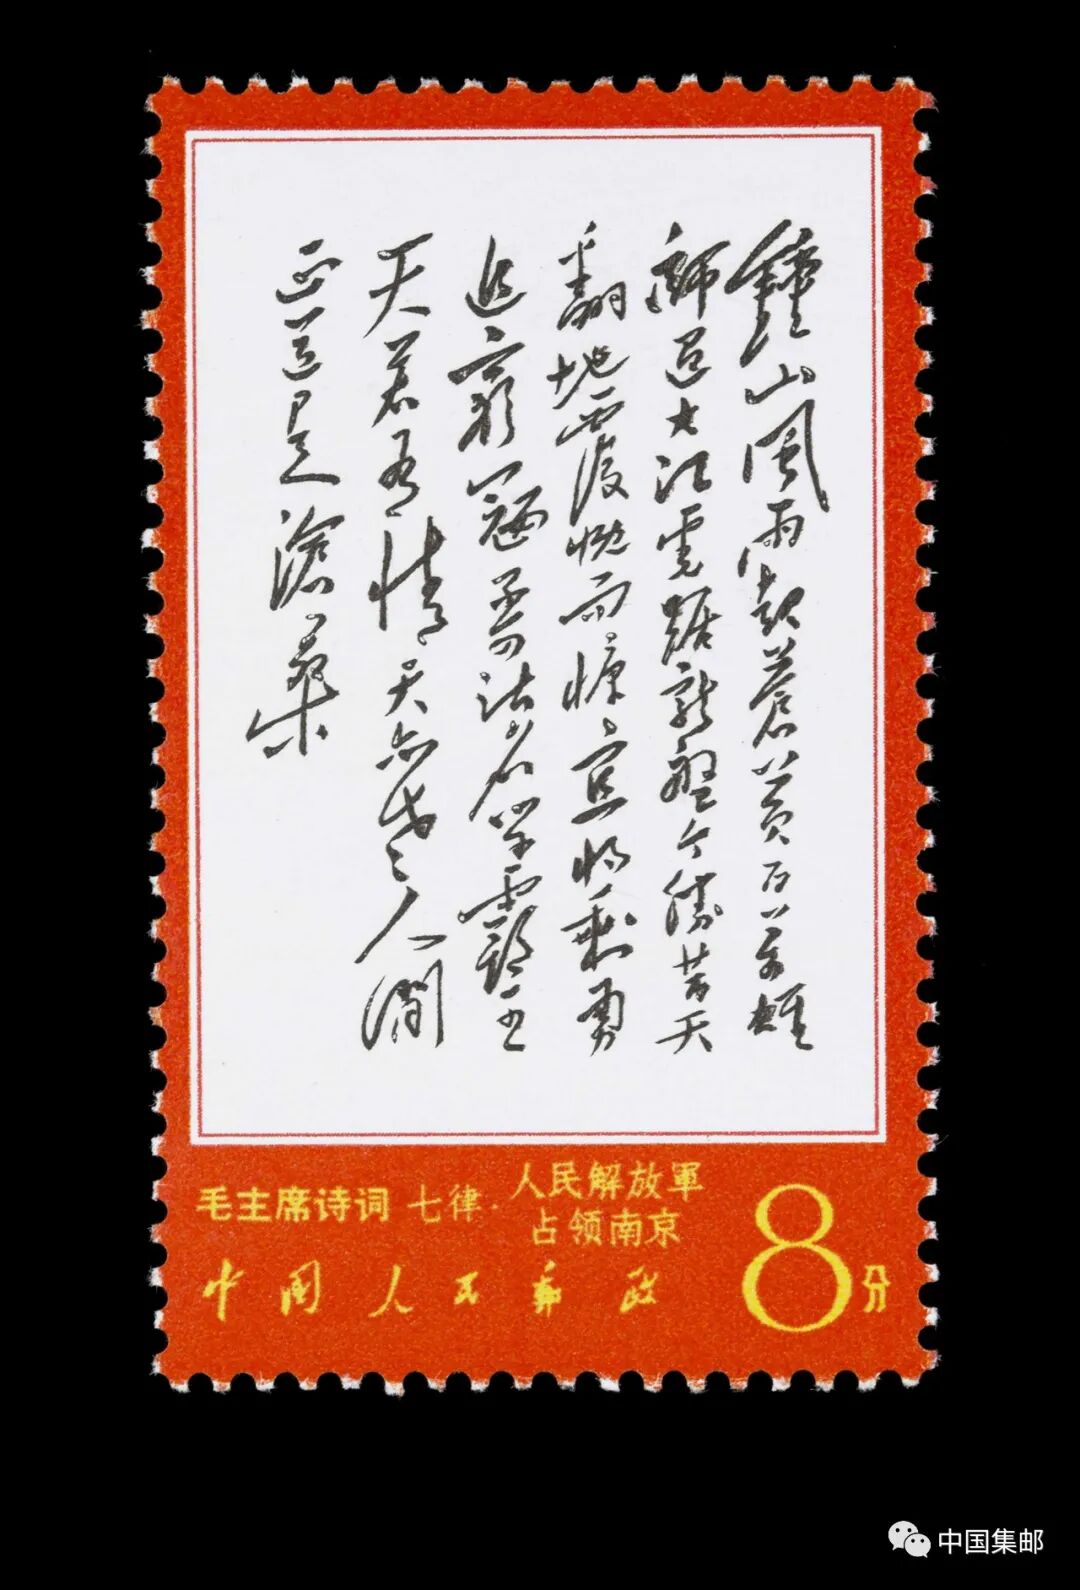 鐘山風雨起蒼黃百萬雄
師過大江虎踞龍盤今勝昔天
翻地覆慨而慷宜將剩勇
追窮寇不可沽名學霸王
天若有情天亦老人間
正道是滄桑
毛主席诗词 七律·人民解放軍
占领南京
中国人民邮政
8分
中国集邮